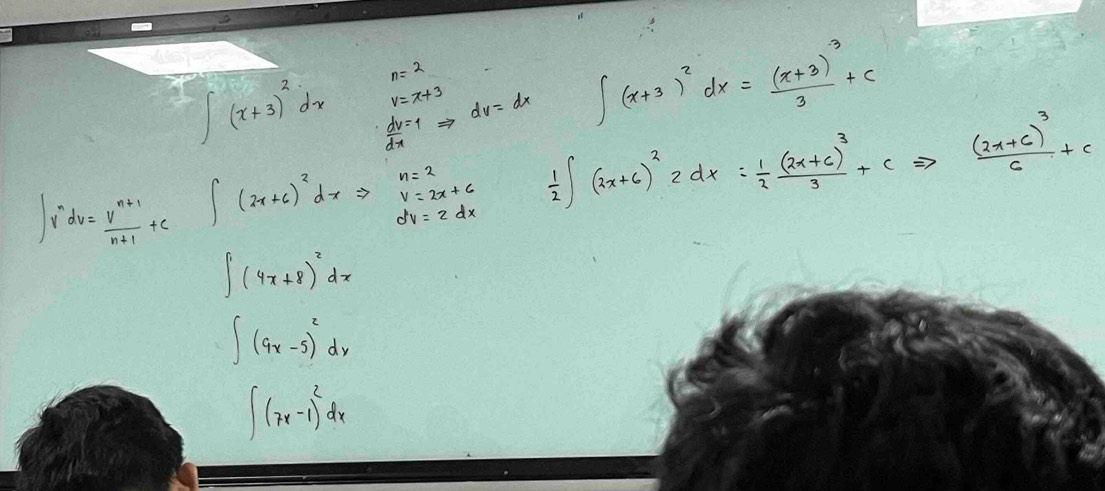 ∫ (x+3)² dx
n = 2
v = x+3
dv/dx = 1 ⇒ dv = dx
∫ (x+3)² dx = (x+3)³/3 + c
∫ vⁿ dv = vⁿ⁺¹/n+1 + c
∫ (2x+6)² dx ⇒
n = 2
v = 2x+6
dv = 2 dx
1/2 ∫ (2x+6)² 2 dx = 1/2 (2x+6)³/3 + c ⇒ (2x+6)³/6 + c
∫ (4x+8)² dx
∫ (9x-5)² dx
∫ (7x-1)² dx